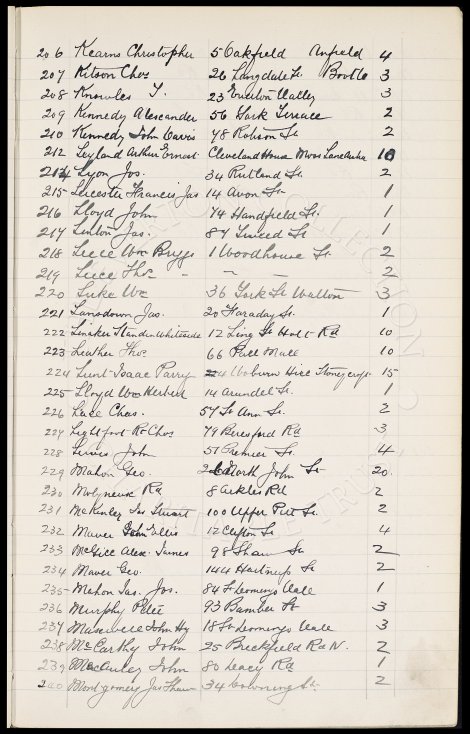 206 Kearns Christopher 5 Oakfield Anfield 4
207 Kitson Thos 26 Langdale St Bootle 3
208 Knowles T. 23 Everton Valley 3
209 Kennedy Alexcander 56 York Terrace 2
210 Kennedy John Davis 78 Robson St 2
212 Leyland Arthur Ernest Cleveland House Moss Lane 10
214 Lyon Jos. 34 Rutland St. 2
215 Leicester Francis Jas 14 Avon St 1
216 Lloyd John 74 Handfield St. 1
217 Linton Jas. 87 St. 1
218 Leece Wm Briggs 1 Woodhouse St 2
219 Leece Thos - - - 2
220 Luke Wm 36 York St Walton 3
221 Lansdown Jas. 20 Faraday St. 1
222 Linaker Standen Whiteside 12 Ling St Holt Rd 10
223 Leather Thos. 66 Pall Mall 10
224 Lunt Isaac Parry Woburn Hill Stoneycroft 15
225 Lloyd Wm Herbert 14 Arundel St. 1
226 Lace Chas. 57 St Ann St. 2
227 Lightfoot Rt Chas 79 Beresford Rd 3
228 John 51 Premier St. 4
229 Mahon Geo. North John St 20
230 Molyneux Rd 8 Arkles Rd 2
231 McKinley Jas Stuart 100 Upper Pitt St. 2
232 Maver John Ellis 12 Clifton St. 4
233 Alex. James 98 Shaw St 2
234 Maver Geo. 144 St 2
235 Mahon Jas. Jos. 84 St Domingo Vale 1
236 Murphy Peter 93 Bamber St 3
237 John Hy 18 St Domingo Vale 3
238 McCarthy John 25 Breckfield Rd N. 2
239 McAuley John 80 Lacey Rd 1
240 Montgomery Jas Shaw 34 St. 2